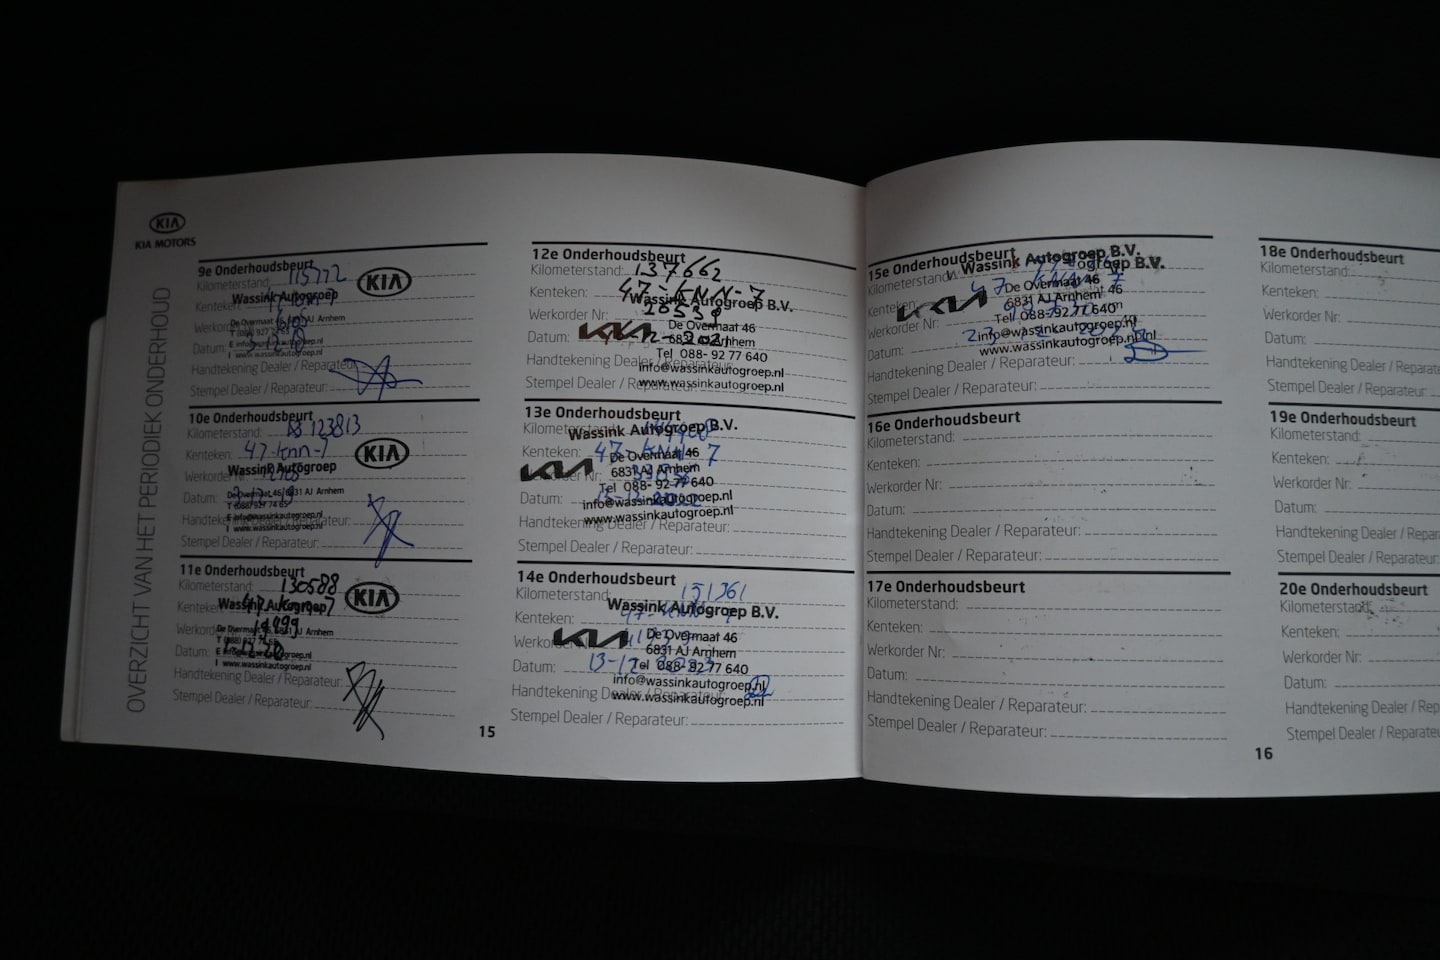 KIA
KIA MOTORS
OVERZICHT VAN HET PERIODIEK ONDERHOUD
9e Onderhoudsbeurt
Kilometerstand: 115772
KIA
Kenteken:
Wassink Autogroep
De Overmaat 46, 6831 AJ Arnhem
Werkorder
Datum:
I www.wassinkautogroep.nl
Handtekening Dealer / Reparateur:
Stempel Dealer / Reparateur:
10e Onderhoudsbeurt
Kilometerstand: 123813
Kenteken: 47-knn-7
KIA
Wassink Autogroep
Werkorder
De Overmaat 46, 6831 AJ Arnhem
Datum:
T (088) 927 74 65
E info@wassinkautogroep.nl
Handtekening Dealer / Reparateur:
I www.wassinkautogroep.nl
Stempel Dealer / Reparateur:
11e Onderhoudsbeurt
Kilometerstand: 130588
KIA
Kenteken: 47-knn-7
Wassink Autogroep
De Overmaat 46, 6831 AJ Arnhem
Datum:
I www.wassinkautogroep.nl
Handtekening Dealer / Reparateur:
Stempel Dealer / Reparateur:
12e Onderhoudsbeurt
Kilometerstand: 137662
Kenteken: 47-KNN-7
Wassink Autogroep B.V.
Werkorder Nr: 28539
KIA De Overmaat 46
Datum: 12-2021
6831 AJ Arnhem
Tel 088- 92 77 640
Handtekening Dealer / Reparateur:
info@wassinkautogroep.nl
Stempel Dealer / Reparateur:
www.wassinkautogroep.nl
13e Onderhoudsbeurt
Kilometerstand:
Wassink Autogroep B.V.
Kenteken: 47-KNN-7
De Overmaat 46
KIA 6831 AJ Arnhem
Tel 088- 92 77 640
Datum: 2022
info@wassinkautogroep.nl
www.wassinkautogroep.nl
Handtekening Dealer / Reparateur:
Stempel Dealer / Reparateur:
14e Onderhoudsbeurt
Kilometerstand: 151361
Wassink Autogroep B.V.
Kenteken: 47-KNN-7
De Overmaat 46
KIA 6831 AJ Arnhem
Datum: 13-12-2023
Tel 088- 92 77 640
info@wassinkautogroep.nl
Handtekening Dealer / Reparateur:
www.wassinkautogroep.nl
Stempel Dealer / Reparateur:
15
15e Onderhoudsbeurt
Wassink Autogroep B.V.
Kilometerstand:
Kenteken: 47 KNN 7
De Overmaat 46
KIA 6831 AJ Arnhem
Werkorder Nr:
Tel 088- 92 77 640
info@wassinkautogroep.nl
Datum:
www.wassinkautogroep.nl
Handtekening Dealer / Reparateur:
Stempel Dealer / Reparateur:
16e Onderhoudsbeurt
Kilometerstand:
Kenteken:
Werkorder Nr:
Datum:
Handtekening Dealer / Reparateur:
Stempel Dealer / Reparateur:
17e Onderhoudsbeurt
Kilometerstand:
Kenteken:
Werkorder Nr:
Datum:
Handtekening Dealer / Reparateur:
Stempel Dealer / Reparateur:
18e Onderhoudsbeurt
Kilometerstand:
Kenteken:
Werkorder Nr:
Datum:
Handtekening Dealer / Repara
Stempel Dealer / Reparateur
19e Onderhoudsbeurt
Kilometerstand:
Kenteken:
Werkorder Nr:
Datum:
Handtekening Dealer / Repar
Stempel Dealer / Reparateur:
20e Onderhoudsbeurt
Kilometerstand:
Kenteken:
Werkorder Nr:
Datum:
Handtekening Dealer / Rep
Stempel Dealer / Reparateu
16